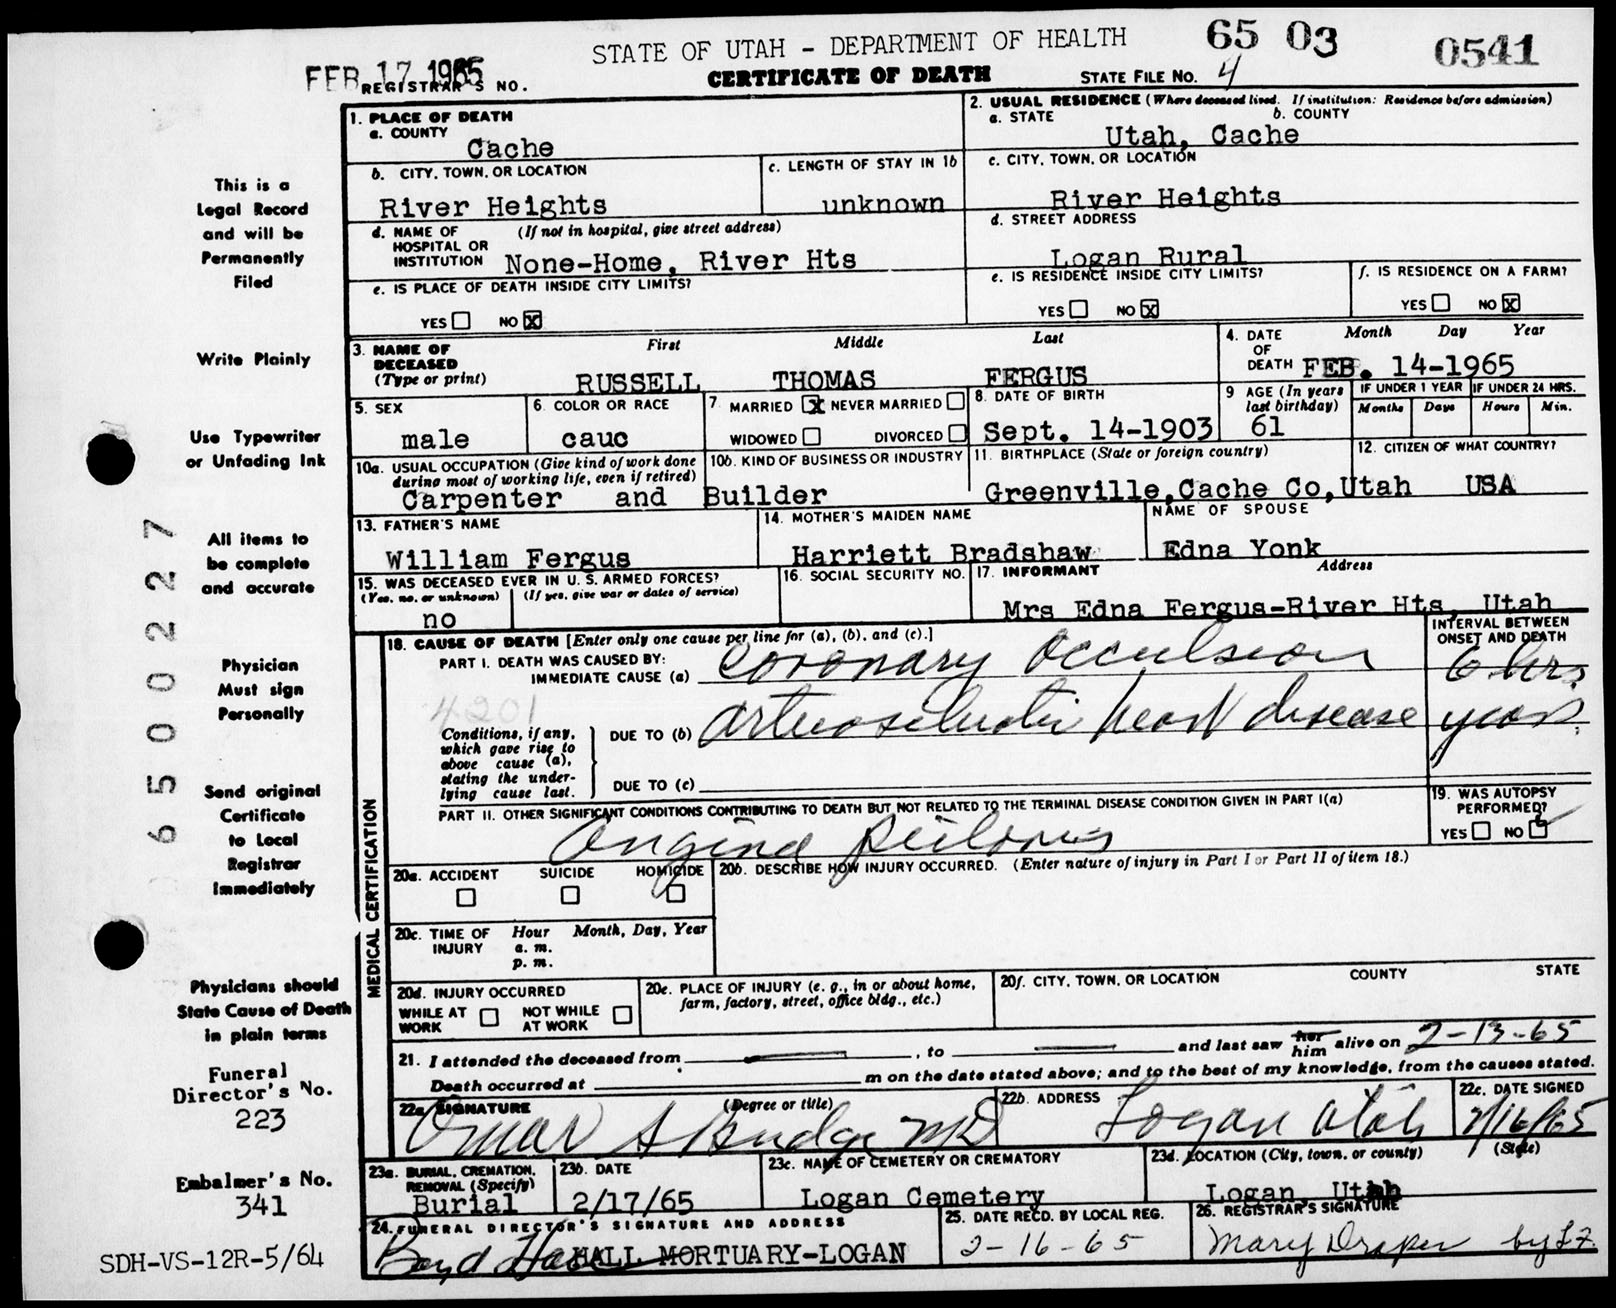 STATE OF UTAH - DEPARTMENT OF HEALTH
65 03 0541
FEB 17 1965
REGISTRAR'S NO.
CERTIFICATE OF DEATH
STATE FILE NO. 4
This is a
Legal Record
and will be
Permanently
Filed
Write Plainly
Use Typewriter
or Unfading Ink
All items to
be complete
and accurate
Physician
Must sign
Personally
Send original
Certificate
to Local
Registrar
Immediately
Physicians should
State Cause of Death
in plain terms
Funeral
Director's No.
223
Embalmer's No.
341
SDH-VS-12R-5/64
6500227
1. PLACE OF DEATH
a. COUNTY
Cache
2. USUAL RESIDENCE (Where deceased lived. If institution: Residence before admission)
a. STATE b. COUNTY
Utah, Cache
b. CITY, TOWN, OR LOCATION
River Heights
c. LENGTH OF STAY IN 1b
unknown
c. CITY, TOWN, OR LOCATION
River Heights
d. NAME OF (If not in hospital, give street address)
HOSPITAL OR
INSTITUTION None-Home, River Hts
d. STREET ADDRESS
Logan Rural
e. IS PLACE OF DEATH INSIDE CITY LIMITS?
YES NO X
e. IS RESIDENCE INSIDE CITY LIMITS?
YES NO X
f. IS RESIDENCE ON A FARM?
YES NO X
3. NAME OF First Middle Last
DECEASED
(Type or print) RUSSELL THOMAS FERGUS
4. DATE Month Day Year
OF
DEATH FEB. 14-1965
5. SEX
male
6. COLOR OR RACE
cauc
7. MARRIED X NEVER MARRIED
WIDOWED DIVORCED
8. DATE OF BIRTH
Sept. 14-1903
9 AGE (In years
last birthday)
61
IF UNDER 1 YEAR IF UNDER 24 HRS.
Months Days Hours Min.
10a. USUAL OCCUPATION (Give kind of work done
during most of working life, even if retired)
10b. KIND OF BUSINESS OR INDUSTRY
Carpenter and Builder
11. BIRTHPLACE (State or foreign country)
Greenville, Cache Co, Utah
12. CITIZEN OF WHAT COUNTRY?
USA
13. FATHER'S NAME
William Fergus
14. MOTHER'S MAIDEN NAME
Harriett Bradshaw
NAME OF SPOUSE
Edna Yonk
15. WAS DECEASED EVER IN U. S. ARMED FORCES?
(Yes, no, or unknown) (If yes, give war or dates of service)
no
16. SOCIAL SECURITY NO.
17. INFORMANT Address
Mrs Edna Fergus-River Hts, Utah
MEDICAL CERTIFICATION
18. CAUSE OF DEATH [Enter only one cause per line for (a), (b), and (c).]
INTERVAL BETWEEN
ONSET AND DEATH
PART I. DEATH WAS CAUSED BY:
IMMEDIATE CAUSE (a) Coronary Occulsion 6 hrs.
4201
Conditions, if any,
which gave rise to
above cause (a),
stating the under-
lying cause last.
DUE TO (b) arteriosclerotic heart disease years
DUE TO (c)
PART II. OTHER SIGNIFICANT CONDITIONS CONTRIBUTING TO DEATH BUT NOT RELATED TO THE TERMINAL DISEASE CONDITION GIVEN IN PART I(a)
Angina Pectoris
19. WAS AUTOPSY
PERFORMED?
YES NO
20a. ACCIDENT SUICIDE HOMICIDE
20b. DESCRIBE HOW INJURY OCCURRED. (Enter nature of injury in Part I or Part II of item 18.)
20c. TIME OF Hour Month, Day, Year
INJURY a. m.
p. m.
20d. INJURY OCCURRED
WHILE AT NOT WHILE
WORK AT WORK
20e. PLACE OF INJURY (e. g., in or about home,
farm, factory, street, office bldg., etc.)
20f. CITY, TOWN, OR LOCATION COUNTY STATE
21. I attended the deceased from , to and last saw her him alive on 2-13-65
Death occurred at m on the date stated above; and to the best of my knowledge, from the causes stated.
22a. SIGNATURE (Degree or title)
Omar S Budge MD
22b. ADDRESS
Logan Utah
22c. DATE SIGNED
2/16/65
23a. BURIAL, CREMATION,
REMOVAL (Specify)
Burial
23b. DATE
2/17/65
23c. NAME OF CEMETERY OR CREMATORY
Logan Cemetery
23d. LOCATION (City, town, or county) (State)
Logan, Utah
24. FUNERAL DIRECTOR'S SIGNATURE AND ADDRESS
Boyd Hall HALL MORTUARY-LOGAN
25. DATE RECD. BY LOCAL REG.
2-16-65
26. REGISTRAR'S SIGNATURE
Mary Draper by L.F.